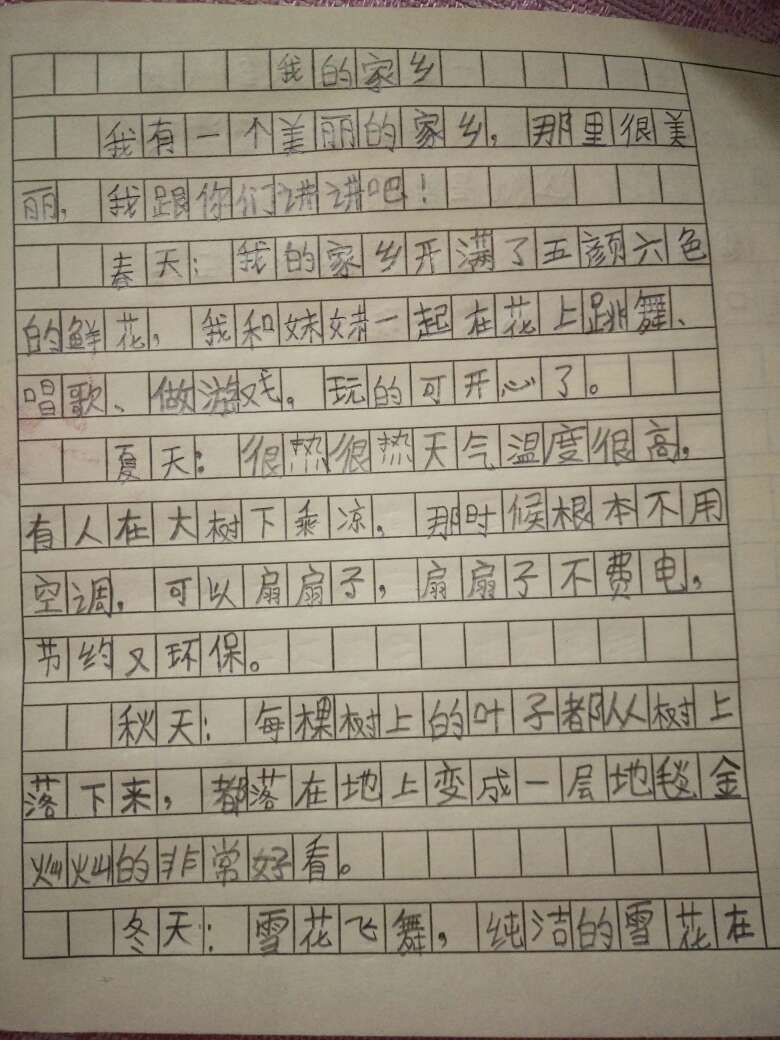 我的家乡
我有一个美丽的家乡，那里很美
丽，我跟你们讲讲吧！
春天：我的家乡开满了五颜六色
的鲜花，我和妹妹一起在花上跳舞、
唱歌、做游戏，玩的可开心了。
夏天：很热很热天气温度很高，
有人在大树下乘凉，那时候根本不用
空调，可以扇扇子，扇扇子不费电，
节约又环保。
秋天：每棵树上的叶子都从树上
落下来，都落在地上变成一层地毯金
灿灿的非常好看。
冬天：雪花飞舞，纯洁的雪花在